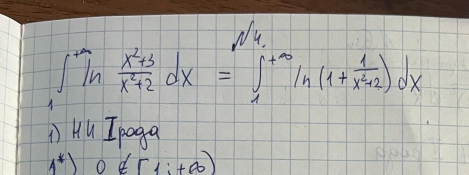 №4.
∫₁^{+∞} ln (x²+3)/(x²+2) dx = ∫₁^{+∞} ln (1 + 1/(x²+2)) dx
1) НИ I рода
1*) 0 ∉ [1; +∞)